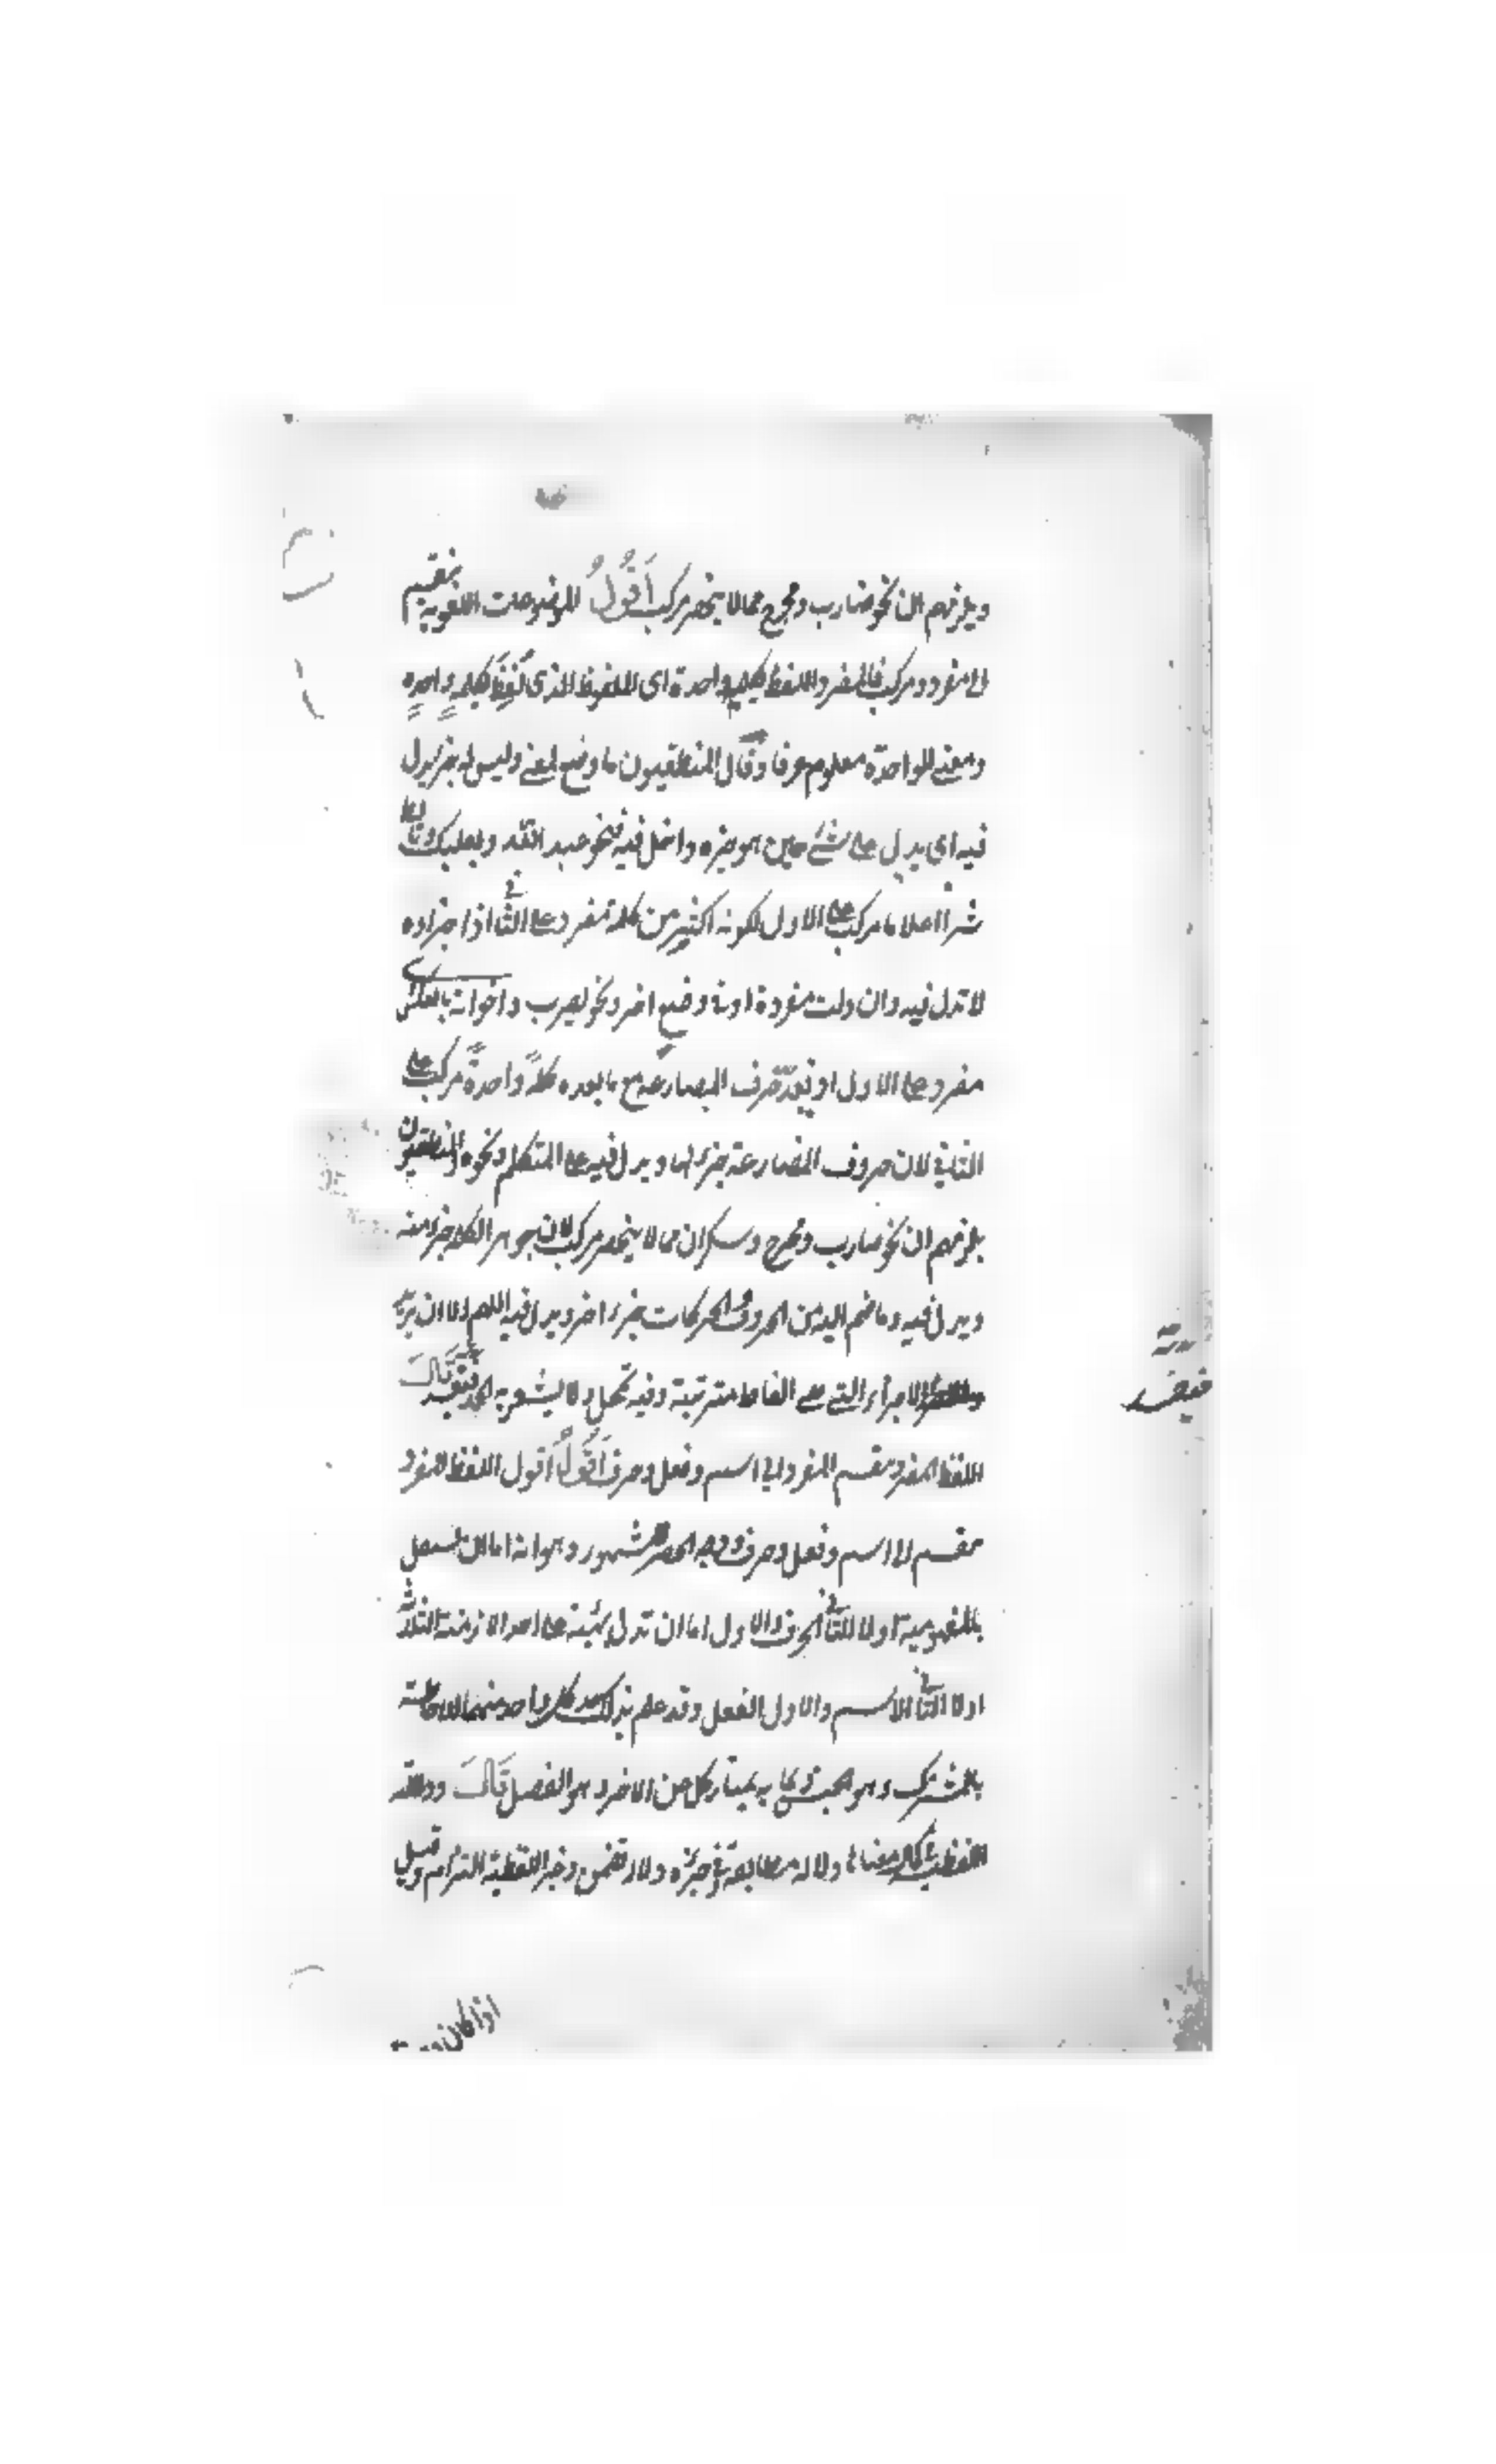 ويلزمهم ان نحو ضارب ومخرج مما لا ينحصر مركب أقول الموضوعات اللغوية تنقسم
الى مفرد ومركب فالمفرد اللفظ بكلمة واحدة اى الملفوظ الذى لفظ بكلمة واحدة
ومعنى الواحدة معلوم عرفا وقال المنطقيون ما وضع لمعنى وليس له جزء يدل
فيه اى يدل على شئ حين هو جزءه داخل فيه فنحو عبد الله وبعلبك وتأبط
شرا اعلاما مركب على الاول لكونه اكثر من كلمة مفرد على الثانى اذ اجزاؤه
لا تدل فيه وان دلت مفردة او فى وضع اخر ونحو يضرب واخواته بالعكس
مفرد على الاول اذ يعد حرف المضارعة مع ما بعده كلمة واحدة مركب على
الثانى لان حروف المضارعة جزء لها ويدل فيه على المتكلم ونحوه والمنطقيون
يلزمهم ان نحو ضارب ومخرج وسكران مما لا ينحصر مركب لان جوهر الكلمة جزء منه
ويدل فيه وما ضم اليه من الحروف والحركات جزء اخر ويدل فيه اللهم الا ان يريدوا
الاجزاء التى هى الفاظ مترتبة وفيه تمحل ولا يشعر به الحد قال
اللفظ المفرد ينقسم المفرد الى اسم وفعل وحرف أقول اقول اللفظ المفرد
ينقسم الى اسم وفعل وحرف ووجه الحصر المشهور وهو انه اما ان يستقل
بالمفهومية اولا الثانى الحرف والاول اما ان تدل بهيئته على احد الازمنة الثلاثة
اولا الثانى الاسم والاول الفعل وقد علم بذلك حد كل واحد منهما للاحاطة
بالمشترك وهو الجنس وبما به يمتاز كل عن الاخر وهو الفصل قال ودلالته
اللفظية فى كمال معناها دلالة مطابقة وفى جزئه دلالة تضمن وغير اللفظية التزام وقيل
اذا كان